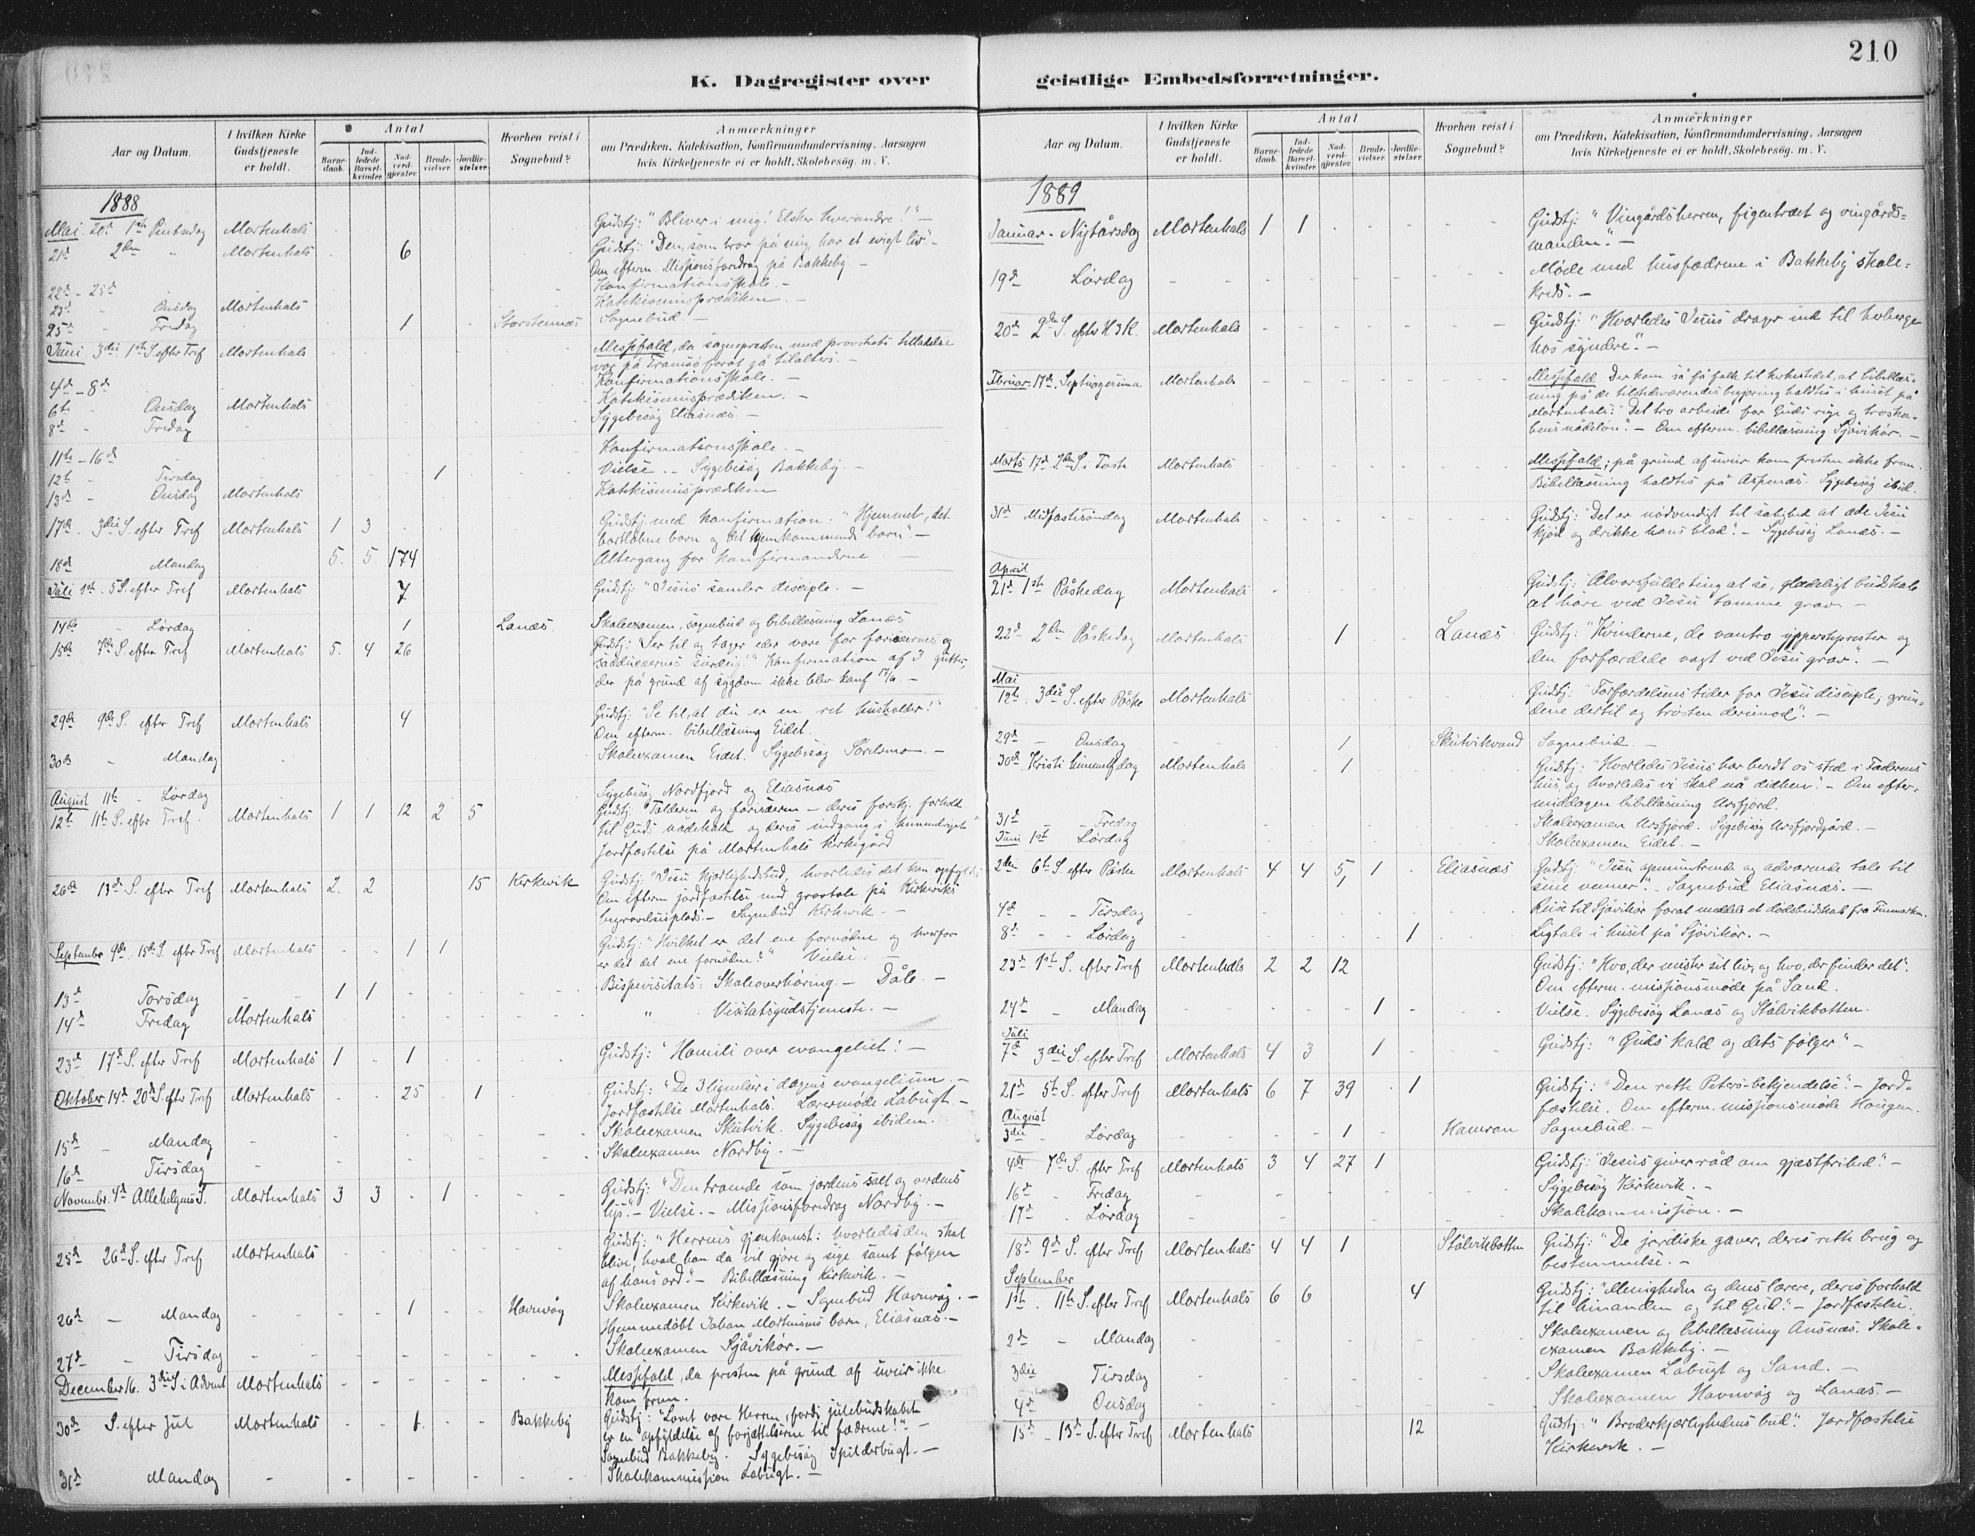 210
K. Dagregister over geistlige Embedsforretninger.
Aar og Datum. I hvilken Kirke Gudstjeneste er holdt. Antal Barnedaab. Indledede Barselkvinder. Nadverdgjæster Brudevielser. Jordfæstelser Hvorhen reist i Sognebud? Anmærkninger
om Prædiken, Katekisation, Konfirmandundervisning. Aarsagen
hvis Kirketjeneste ei er holdt, Skolebesøg. m. V.
1888
Mai 20d 1ste Pintsedag Mortenhals Gudstj: "Bliver i mig! Elsker hverandre!" –
21d 2den " Mortenhals 6 Gudstj: "Den, som tror på mig, har et evigt liv" –
Om efterm. Missionsforedrag på Bakkeby –
22de – 25de Konfirmationsskole. –
23d Onsdag Mortenhals Katekismusprædiken. –
25de Fredag 1 Storstennæs Sognebud. –
Juni 3die 1ste S. efter Tref Mortenhals Messefald, da sognepresten med provstens tilladelse
var på Tromsø forat gå til alters. –
4d – 8d Konfirmationsskole. –
6te Onsdag Mortenhals Katekismusprædiken. –
8d Fredag Sygebesøg Eliasnæs. –
11te – 16d Konfirmationsskole. –
12te Tirsdag 1 Vielse. – Sygebesøg Bakkeby –
13d Onsdag Mortenhals Katekismusprædiken
17de 3die S. efter Tref Mortenhals 1 3 Gudstj. med konfirmation: "Hjemmet, det
bortløbne barn og det hjemkommende barn". –
18d Mandag 5. 5 174 Altergang for konfirmanderne –
Juli 1ste 5 S. efter Tref Mortenhals 7 Gudstj: "Jesus samler disciple. –
14de Lørdag 1 Lanæs Skoleexamen, sognebud og bibellæsning Lanæs
15de 7de S. efter Tref Mortenhals 5. 4 26 Gudstj: "Ser til og tager eder vare for farisæernes og
sadducæernes surdeig!" Konfirmation af 3 gutter
der på grund af sygdom ikke blev konf 17/6. –
29de 9de S. efter Tref Mortenhals 4 Gudstj: "Se til, at du er en ret husholder!"
Om efterm. bibellæsning Eidet.
30de Mandag Skoleexamen Eidet. Sygebesøg Sørelsmo. –
August 11te Lørdag Sygebesøg Nordfjord og Eliasnæs
12te 11te S. efter Tref. Mortenhals 1 1 12 2 5 Gudstj. Tolderen og farisæeren – deres forskj. forhold
til Guds nådekald og deres indgang i himmeriget"
Jordfæstelse på Mortenhals kirkegård
26de 13de S. efter Tref Mortenhals 2. 2 15 Kirkevik Gudstj: "Jesu kjærlighedsbud, hvorledes det kan opfyldes
Om efterm jordfæstelse med gravtale på Kirkeviks
begravelsesplads. – Sognebud Kirkevik. –
September 9de 15de S. efter Tref Mortenhals 1 1 Gudstj: "Hvilket er det ene fornødne og hvorfor
er det det ene fornødne?" Vielse. –
13d Torsdag 1 1 Bispevisitats: Skoleoverhøring. – Dåb. –
14d Fredag Mortenhals " Visitatsgudstjeneste. –
23d 17d S. efter Tref Mortenhals 1 1 Gudstj: "Homili over evangeliet". –
Oktober 14d 20d S. efter Tref Mortenhals 25 1 Gudstj: "De 3 lignelser i dagens evangelium. –
Jordfæstelse Mortenhals. Lærermøde Løbugt. –
15d Mandag Skoleexamen Skutvik. Sygebesøg ibidem.
16d Tirsdag Skoleexamen Nordby. –
Novembr. 4d Allehelgens S. Mortenhals 3 3 1 Gudstj: "De troende som jordens salt og verdens
lys". – Vielse. – Missionsforedrag Nordby. –
25d 26d S. efter Tref Mortenhals Gudstj: "Herrens gjenkomst: hvorledes den skal
blive, hvad han da vil gjøre og sige samt følgen
af hans ord". – Bibellæsning Kirkevik. –
26d Mandag 1 Havnvåg Skoleexamen Kirkevik. – Sognebud Havnvåg. –
Hjemmedøbt Johan Mortensens barn, Eliasnæs. –
27d Tirsdag Skoleexamen Sjåvikør. –
December 16. 3die S. i Advent Mortenhals Messefald, da presten på grund af uveir ikke
kom frem.
30d S. efter Jul Mortenhals 1 Bakkeby Gudstj: "Lovet være Herren, fordi julebudskabet
er en opfyldelse af forjættelserne til fædrene!" –
Sognebud Bakkeby. Sygebesøg Spilderbugt. –
31d Mandag Skolekommission Løbugt. –
Aar og Datum. I hvilken Kirke Gudstjeneste er holdt. Antal Barnedaab. Indledede Barselkvinder. Nadverdgjæster Brudevielser. Jordfæstelser Hvorhen reist i Sognebud? Anmærkninger
om Prædiken, Katekisation, Konfirmandundervisning. Aarsagen
hvis Kirketjeneste ei er holdt, Skolebesøg. m. V.
1889
Januar – Nytårsdag Mortenhals 1 1 Gudstj: "Vingårdsherren, figentræet og vingårds-
manden". –
19d Lørdag Møde med husfædrene i Bakkeby skole-
kreds. –
20d 2den S. efter H3K. Mortenhals Gudstj: "Hvorledes Jesus drager ind til herberge
hos syndere". –
Februar 17d Septuagesima Mortenhals Messefald Der kom så få folk til kirkestedet, at bibellæs-
ning på de tilstedeværendes begjæring holdtes i huset på
Mortenhals: "Det tro arbeide for Guds rige og troska-
bens nådeløn". – Om efterm. bibellæsning Sjåvikør. –
Marts 17d 2den S. i Faste Mortenhals Messefald; på grund af uveir kom presten ikke frem.
Bibellæsning holdtes på Aspenæs. Sygebesøg ibid.
31d Midfastesøndag Mortenhals Gudstj: "Det er nødvendigt til salighed at æde Jesu
kjød og drikke hans blod". – Sygebesøg Lanæs. –
April
21d 1ste Påskedag Mortenhals Gudstj: "Alvorsfulde ting at se, glædeligt budskab
at høre ved Jesu tomme grav –
22d 2den Påskedag Mortenhals 1 Lanæs Gudstj: "Kvinderne, de vantro ypperstprester og
den forfærdede vagt ved Jesu grav". –
Mai
12te 3die S. efter Påske Mortenhals Gudstj: "Forfærdelsens tider for Jesu disciple; grun-
dene dertil og trøsten derimod". –
29d Onsdag 1 Skutvikvand Sognebud. –
30d Kristi himmelfdag Mortenhals 1 Gudstj: "Hvorledes Jesus har beredt os sted i Faderens
hus og hvorledes vi skal nå didhen". – Om efter-
middagen bibellæsning Arsfjord.
31d Fredag Skoleexamen Arsfjord. Sygebesøg Arsfjordgård. –
Juni 1ste Lørdag Skoleexamen Eidet. –
2den 6te S. efter Påske Mortenhals 4 4 5 1 1 Eliasnæs Gudstj: "Jesu opmuntrende og advarende tale til
sine venner". – Sognebud Eliasnæs. –
4d Tirsdag Reise til Sjåvikør forat meddele et dødsbudskab fra Finmarken.
8d Lørdag 1 Ligtale i huset på Sjåvikør. –
23d 1ste S. efter Tref Mortenhals 2 2 12 Gudstj: "Hvo, der mister sit liv, og hvo, der finder det".
Om efterm. missionsmøde på Sand.
24d Mandag 1 Vielse. Sygebesøg Lanæs og Stålvikbotten.
Juli
7d 3die S. efter Tref Mortenhals 4 3 1 Gudstj: "Guds kald og dets følger" –
21d 5te S. efter Tref Mortenhals 6 7 39 1 Gudstj: "Den rette Peters-bekjendelse". – Jord-
fæstelse. Om efterm. missionsmøde Haugen.
August
3die Lørdag 1 Hamran Sognebud. –
4de 7de S. efter Tref Mortenhals 3 4 27 1 Gudstj: "Jesus giver råd om gjæstfrihed". –
16d Fredag Sygebesøg Kirkevik. –
17d Lørdag Skolekommission. –
18d 9d S. efter Tref Mortenhals 4 4 1 Stålvikbotten Gudstj: "De jordiske gaver, deres rette brug og
bestemmelse. –
September
1ste 11te S. efter Tref Mortenhals 6 6 4 Gudstj: "Menigheden og dens lærere, deres forhold
til hinanden og til Gud". – Jordfæstelse.
2d Mandag Skoleexamen og bibellæsning Ansnæs. Skole-
examen Bakkeby. –
3die Tirsdag Skoleexamen Løbugt og Sand. –
4d Onsdag Skoleexamen Havnvåg og Lanæs. –
15d 13d S. efter Tref Mortenhals 12 Gudstj: "Broderkjærlighedens bud". Jordfæstelse
Kirkevik. –